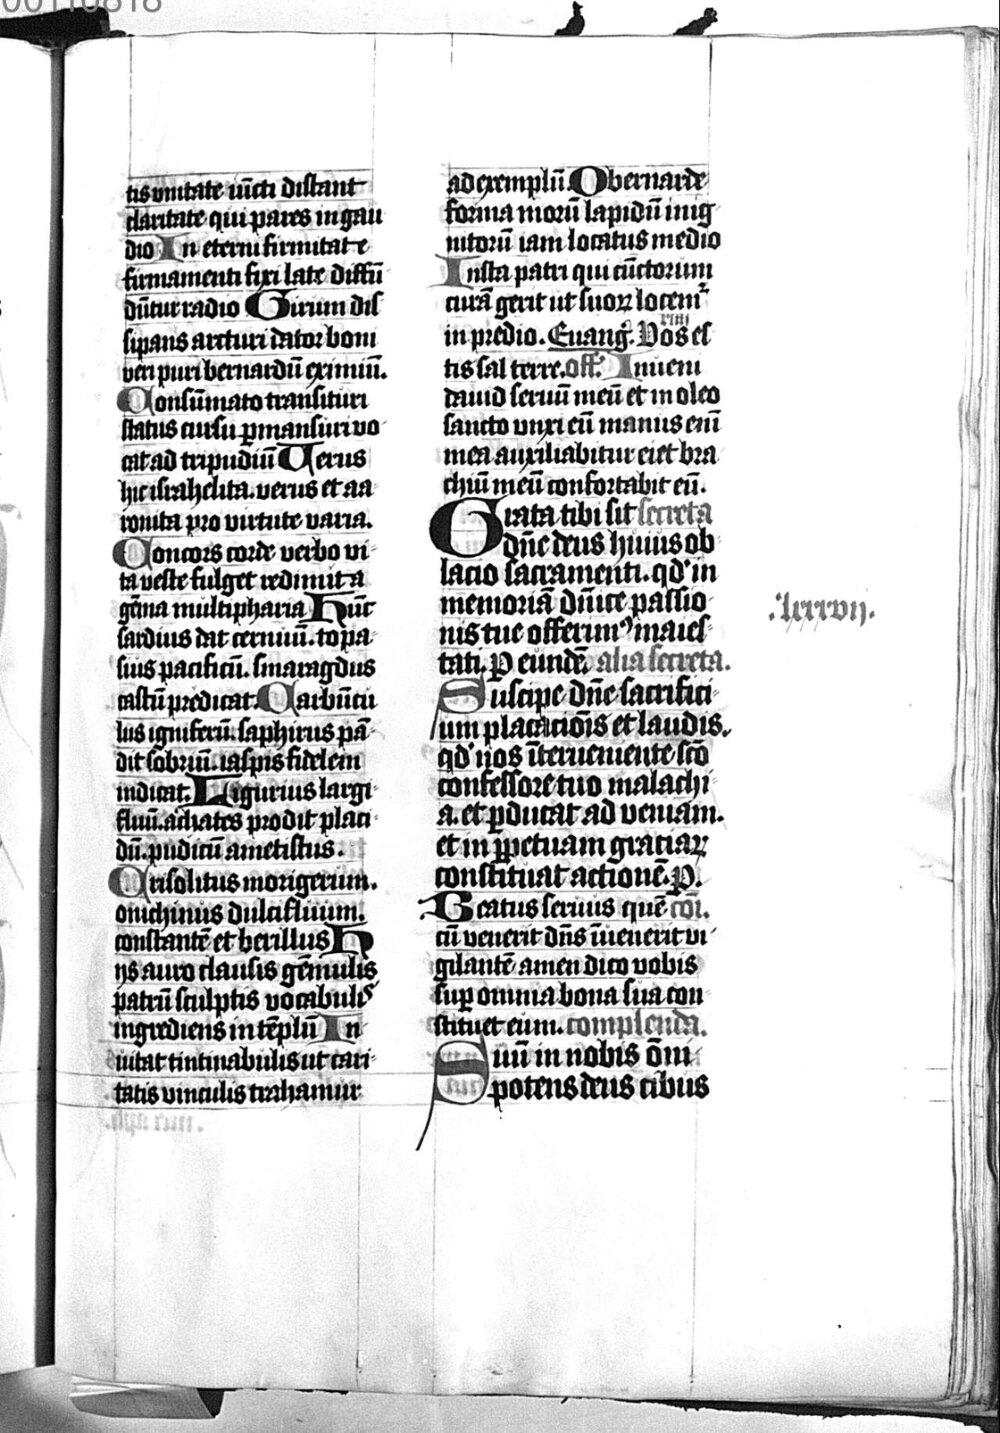 00110818
tis vnitate iu̅cti distant
claritate qui pares in gau
dio In eterni firmitate
firmamenti fixi late diffu̅
du̅tur radio Girum dis
sipans arcturi dator boni
veri puri bernardu̅ eximiu̅.
Consu̅mato transituri
status cursu p̲mansuri vo
cat ad tripudiu̅ Verus
hic israhelita. verus et aa
ronita pro virtute varia.
Concors corde verbo vi
ta veste fulget redimita
ge̅ma multipharia Hu̅c
sardius dat cernuu̅. topa
sius pacificu̅. smaragdus
castu̅ predicat. Carbu̅cu
lus igniferu̅. saphirus pa̅
dit sobriu̅. iaspis fidelem
indicat. Ligurius largi
fluu̅. achates prodit placi
du̅. pudicu̅ ametistus.
Crisolitus morigerum.
onichinus dulcifluum.
constante̅ et berillus H
ijs auro clausis ge̅mulis
patru̅ sculptis vocabulis
ingrediens in te̅plu̅ In
uitat tintinabulis ut cari
tatis vinculis trahamur
ad exemplu̅. O bernarde
forma moru̅ lapidu̅ inig
nitoru̅ iam locatus medio
Insta patri qui cu̅ctorum
cura̅ gerit ut suoꝝ locemꝰ
in predio. Euang̅. Vos es
tis sal terre. off. Inueni
dauid seruu̅ meu̅ et in oleo
sancto vnxi eu̅ manus eni̅
mea auxiliabitur ei et bra
chiu̅ meu̅ confortabit eu̅.
Grata tibi sit secreta
dn̅e deus huius ob
lacio sacramenti. qd' in
memoria̅ dn̅ice passio
nis tue offerimꝰ maies
tati. P eunde̅. alia secreta.
Suscipe dn̅e sacrifici
um placacio̅is et laudis.
qd' nos i̅terueniente sc̅o
confessore tuo malachi
a. et p̲ducat ad veniam.
et in p̲petuam graciaꝝ
constituat actione̅. P.
Beatus seruus que̅ co̅i.
cu̅ venerit dn̅s i̅uenerit vi
gilante̅ amen dico vobis
sup̲ omnia bona sua con
stituet eum. complenda.
Suu̅ in nobis o̅m
potens deus cibus
.lxxxvij.